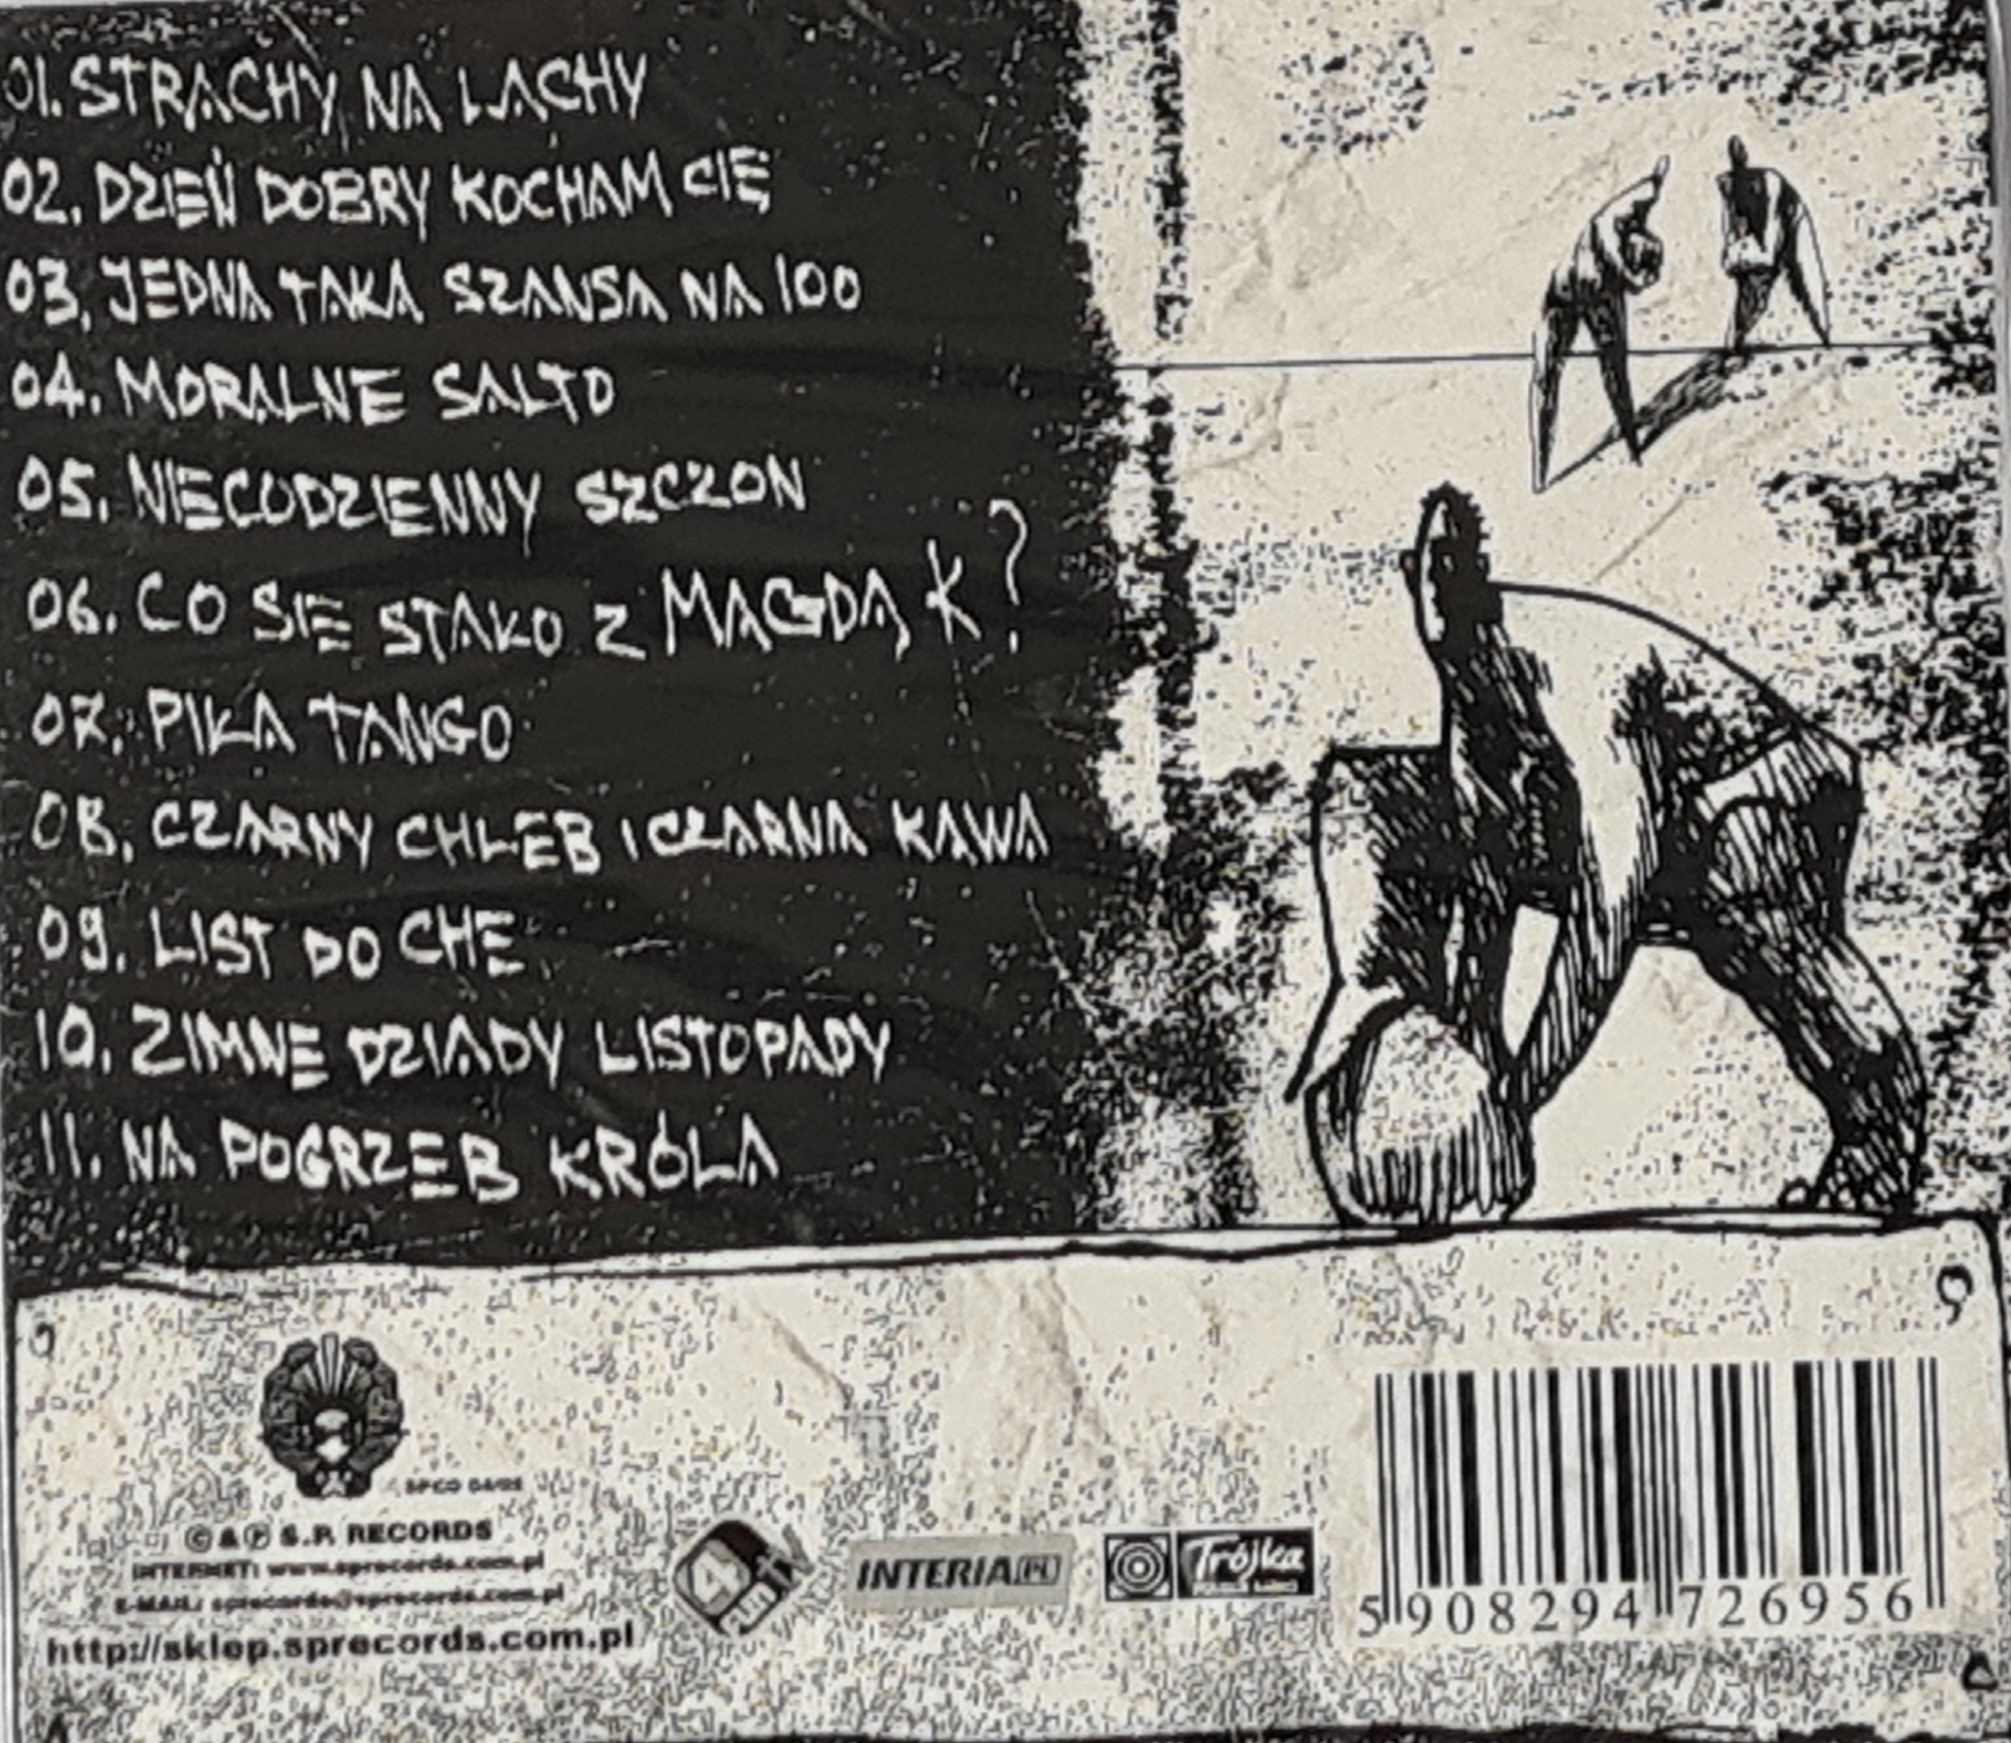 01. STRACHY NA LACHY
02. DZIEŃ DOBRY KOCHAM CIĘ
03. JEDNA TAKA SZANSA NA 100
04. MORALNE SALTO
05. NIECODZIENNY SZCZON
06. CO SIĘ STAŁO Z MAGDĄ K?
07. PIŁA TANGO
08. CZARNY CHLEB I CZARNA KAWA
09. LIST DO CHE
10. ZIMNE DZIADY LISTOPADY
11. NA POGRZEB KRÓLA
SPCD 04/05
© & ℗ S.P. RECORDS
INTERNET: www.sprecords.com.pl
E-MAIL: sprecords@sprecords.com.pl
http://sklep.sprecords.com.pl
4 fun TV
INTERIA.PL
Trójka
5 908294 726956